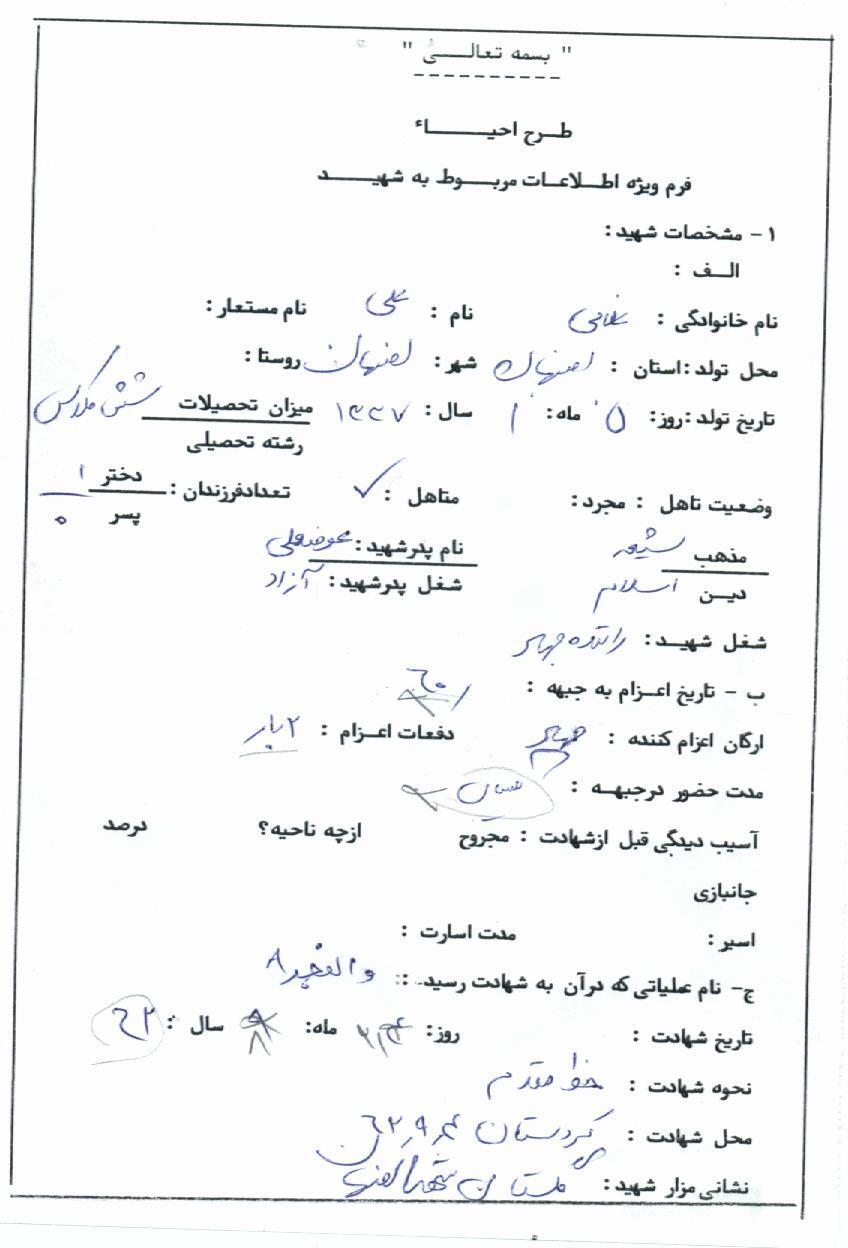 " بسمه تعالی "
طرح احیاء
فرم ویژه اطلاعات مربوط به شهید
۱- مشخصات شهید :
الف :
نام خانوادگی : غلامی نام : علی نام مستعار :
محل تولد : استان : اصفهان شهر : اصفهان روستا :
تاریخ تولد : روز : ۵ ماه : ۱ سال : ۱۳۳۷ میزان تحصیلات شش کلاس
رشته تحصیلی
وضعیت تاهل : مجرد : متاهل : ✓ تعدادفرزندان : دختر ۱
پسر ۰
مذهب شیعه نام پدرشهید : عوضعلی
دین اسلام شغل پدرشهید : آزاد
شغل شهید : راننده جهاد
ب - تاریخ اعزام به جبهه : ۶۰
ارگان اعزام کننده : جهاد دفعات اعزام : ۲ بار
مدت حضور درجبهه :
آسیب دیدگی قبل ازشهادت : مجروح ازچه ناحیه؟ درصد
جانبازی
اسیر : مدت اسارت :
ج- نام عملیاتی که درآن به شهادت رسید : والفجر ۸
تاریخ شهادت : روز : ماه : سال : ۶۲
نحوه شهادت : خط مقدم
محل شهادت : کردستان
نشانی مزار شهید : گلستان شهدا اصفهان